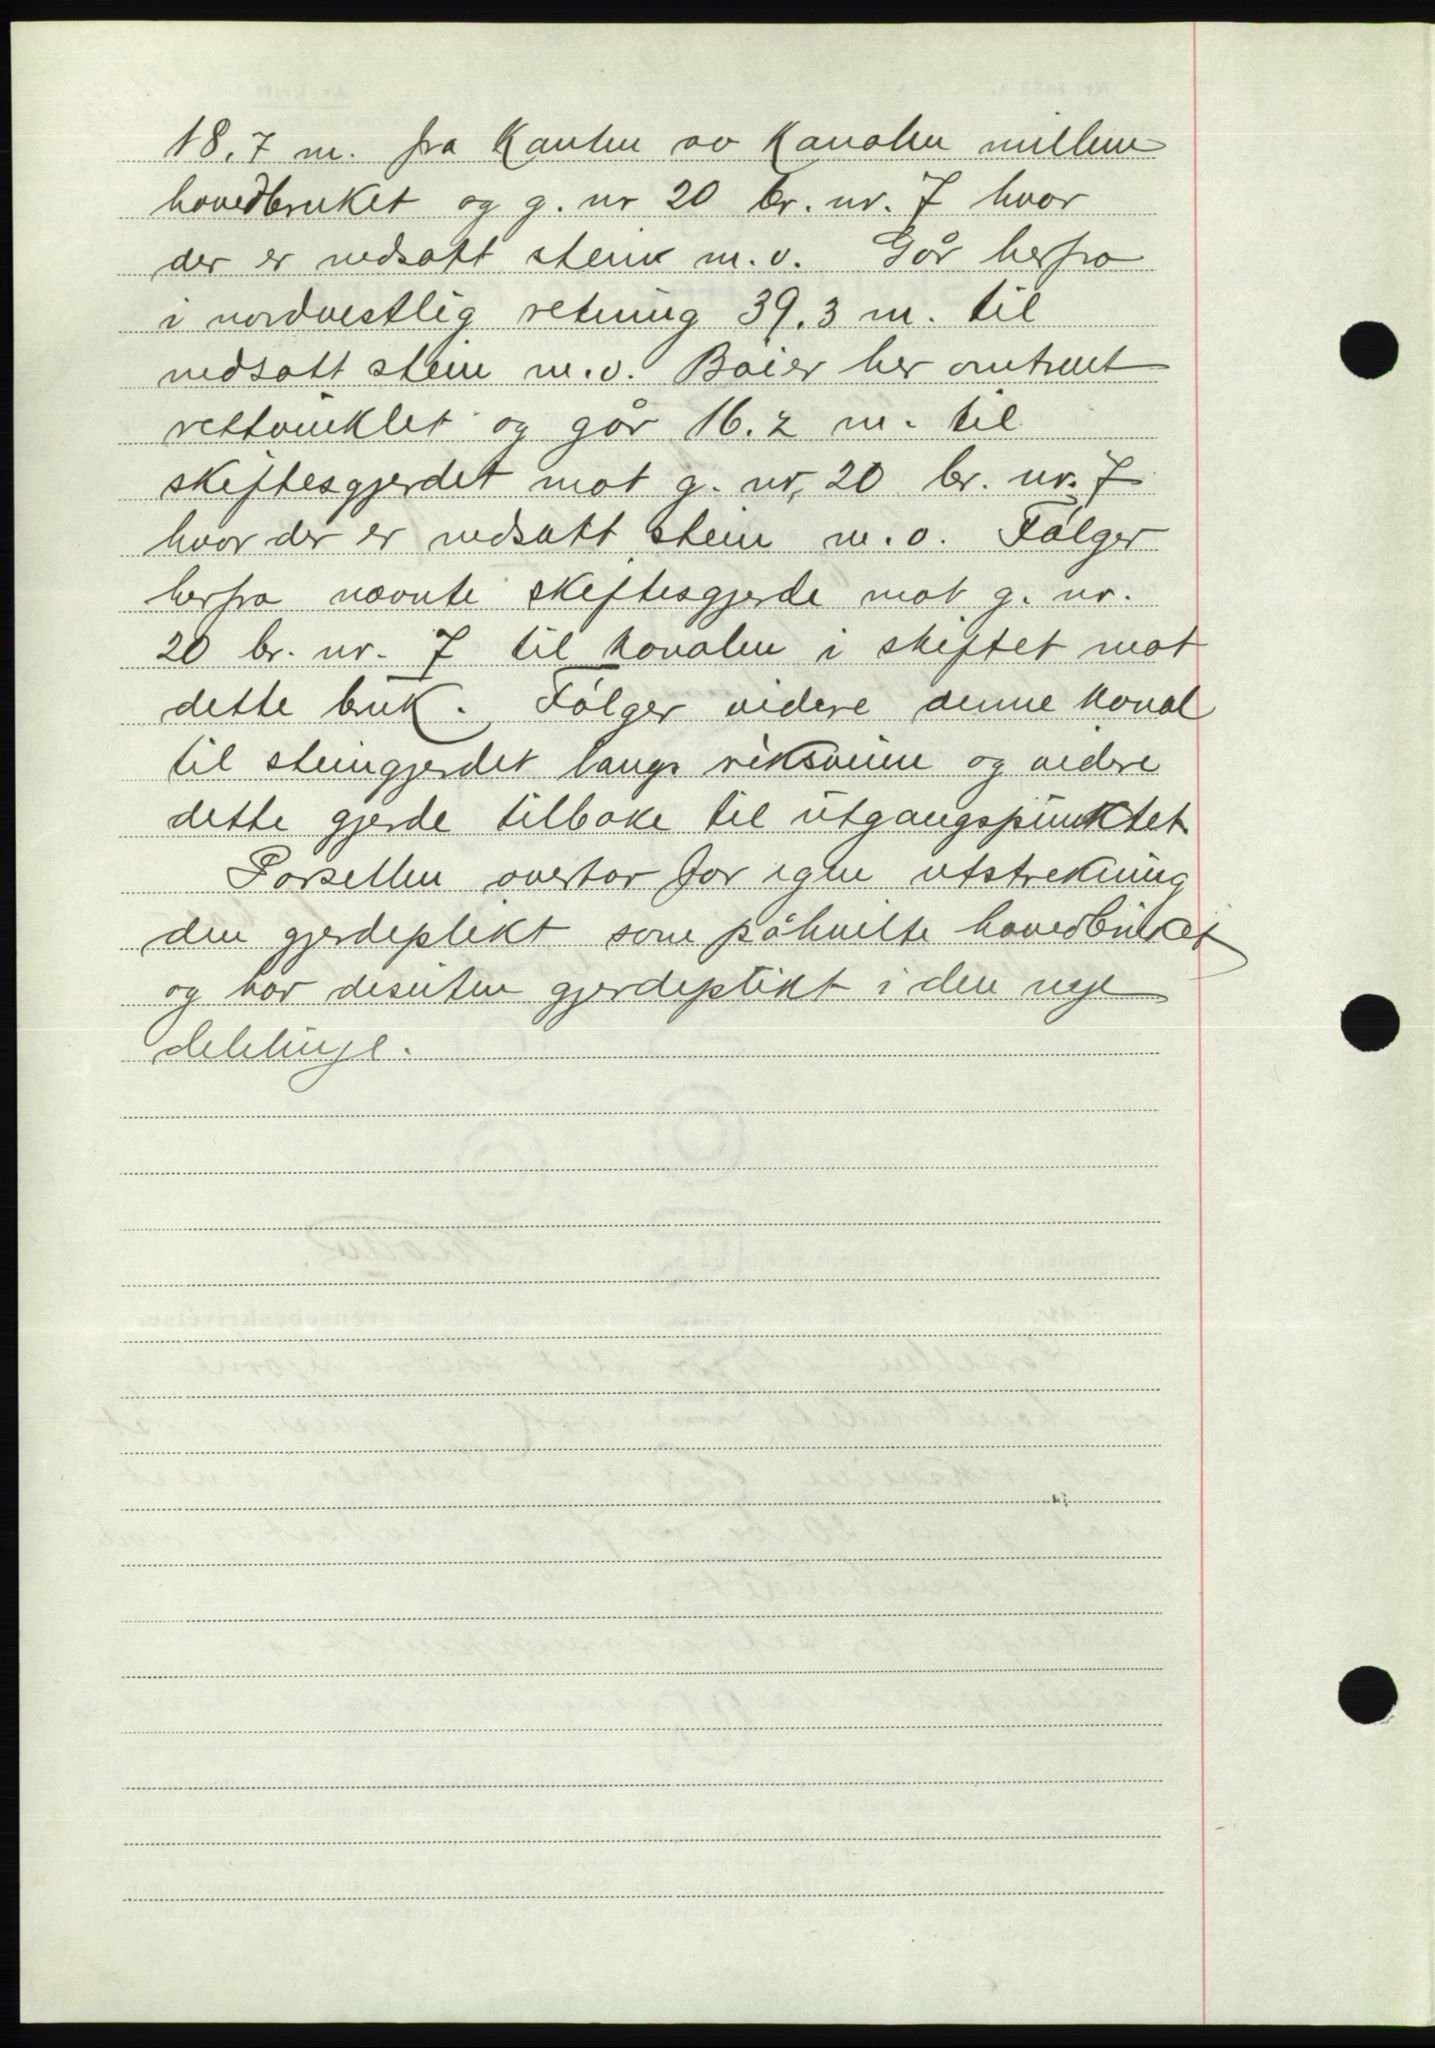 18.7 m. fra Kanten av Kanalen millem
hovedbruket og g. nr 20 br. nr. 7 hvor
der er nedsatt stein m.v. Går herfra
i nordvestlig retning 39.3 m. til
nedsatt stein m.v. Bøier her omtrent
rettvinklet og går 16.2 m. til
skiftesgjerdet mot g. nr. 20 br. nr. 7
hvor der er nedsatt stein m.v. Følger
herfra nevnte skiftesgjerde mot g. nr.
20 br. nr. 7 til kanalen i skiftet mot
dette bruk. Følger videre denne kanal
til steingjerdet langs riksveien og videre
dette gjerde tilbake til utgangspunktet
Parsellen overtar for egen utstrekning
den gjerdeplikt som påhvilte hovedbruket
og har desuten gjerdeplikt i den nye
delelinje.